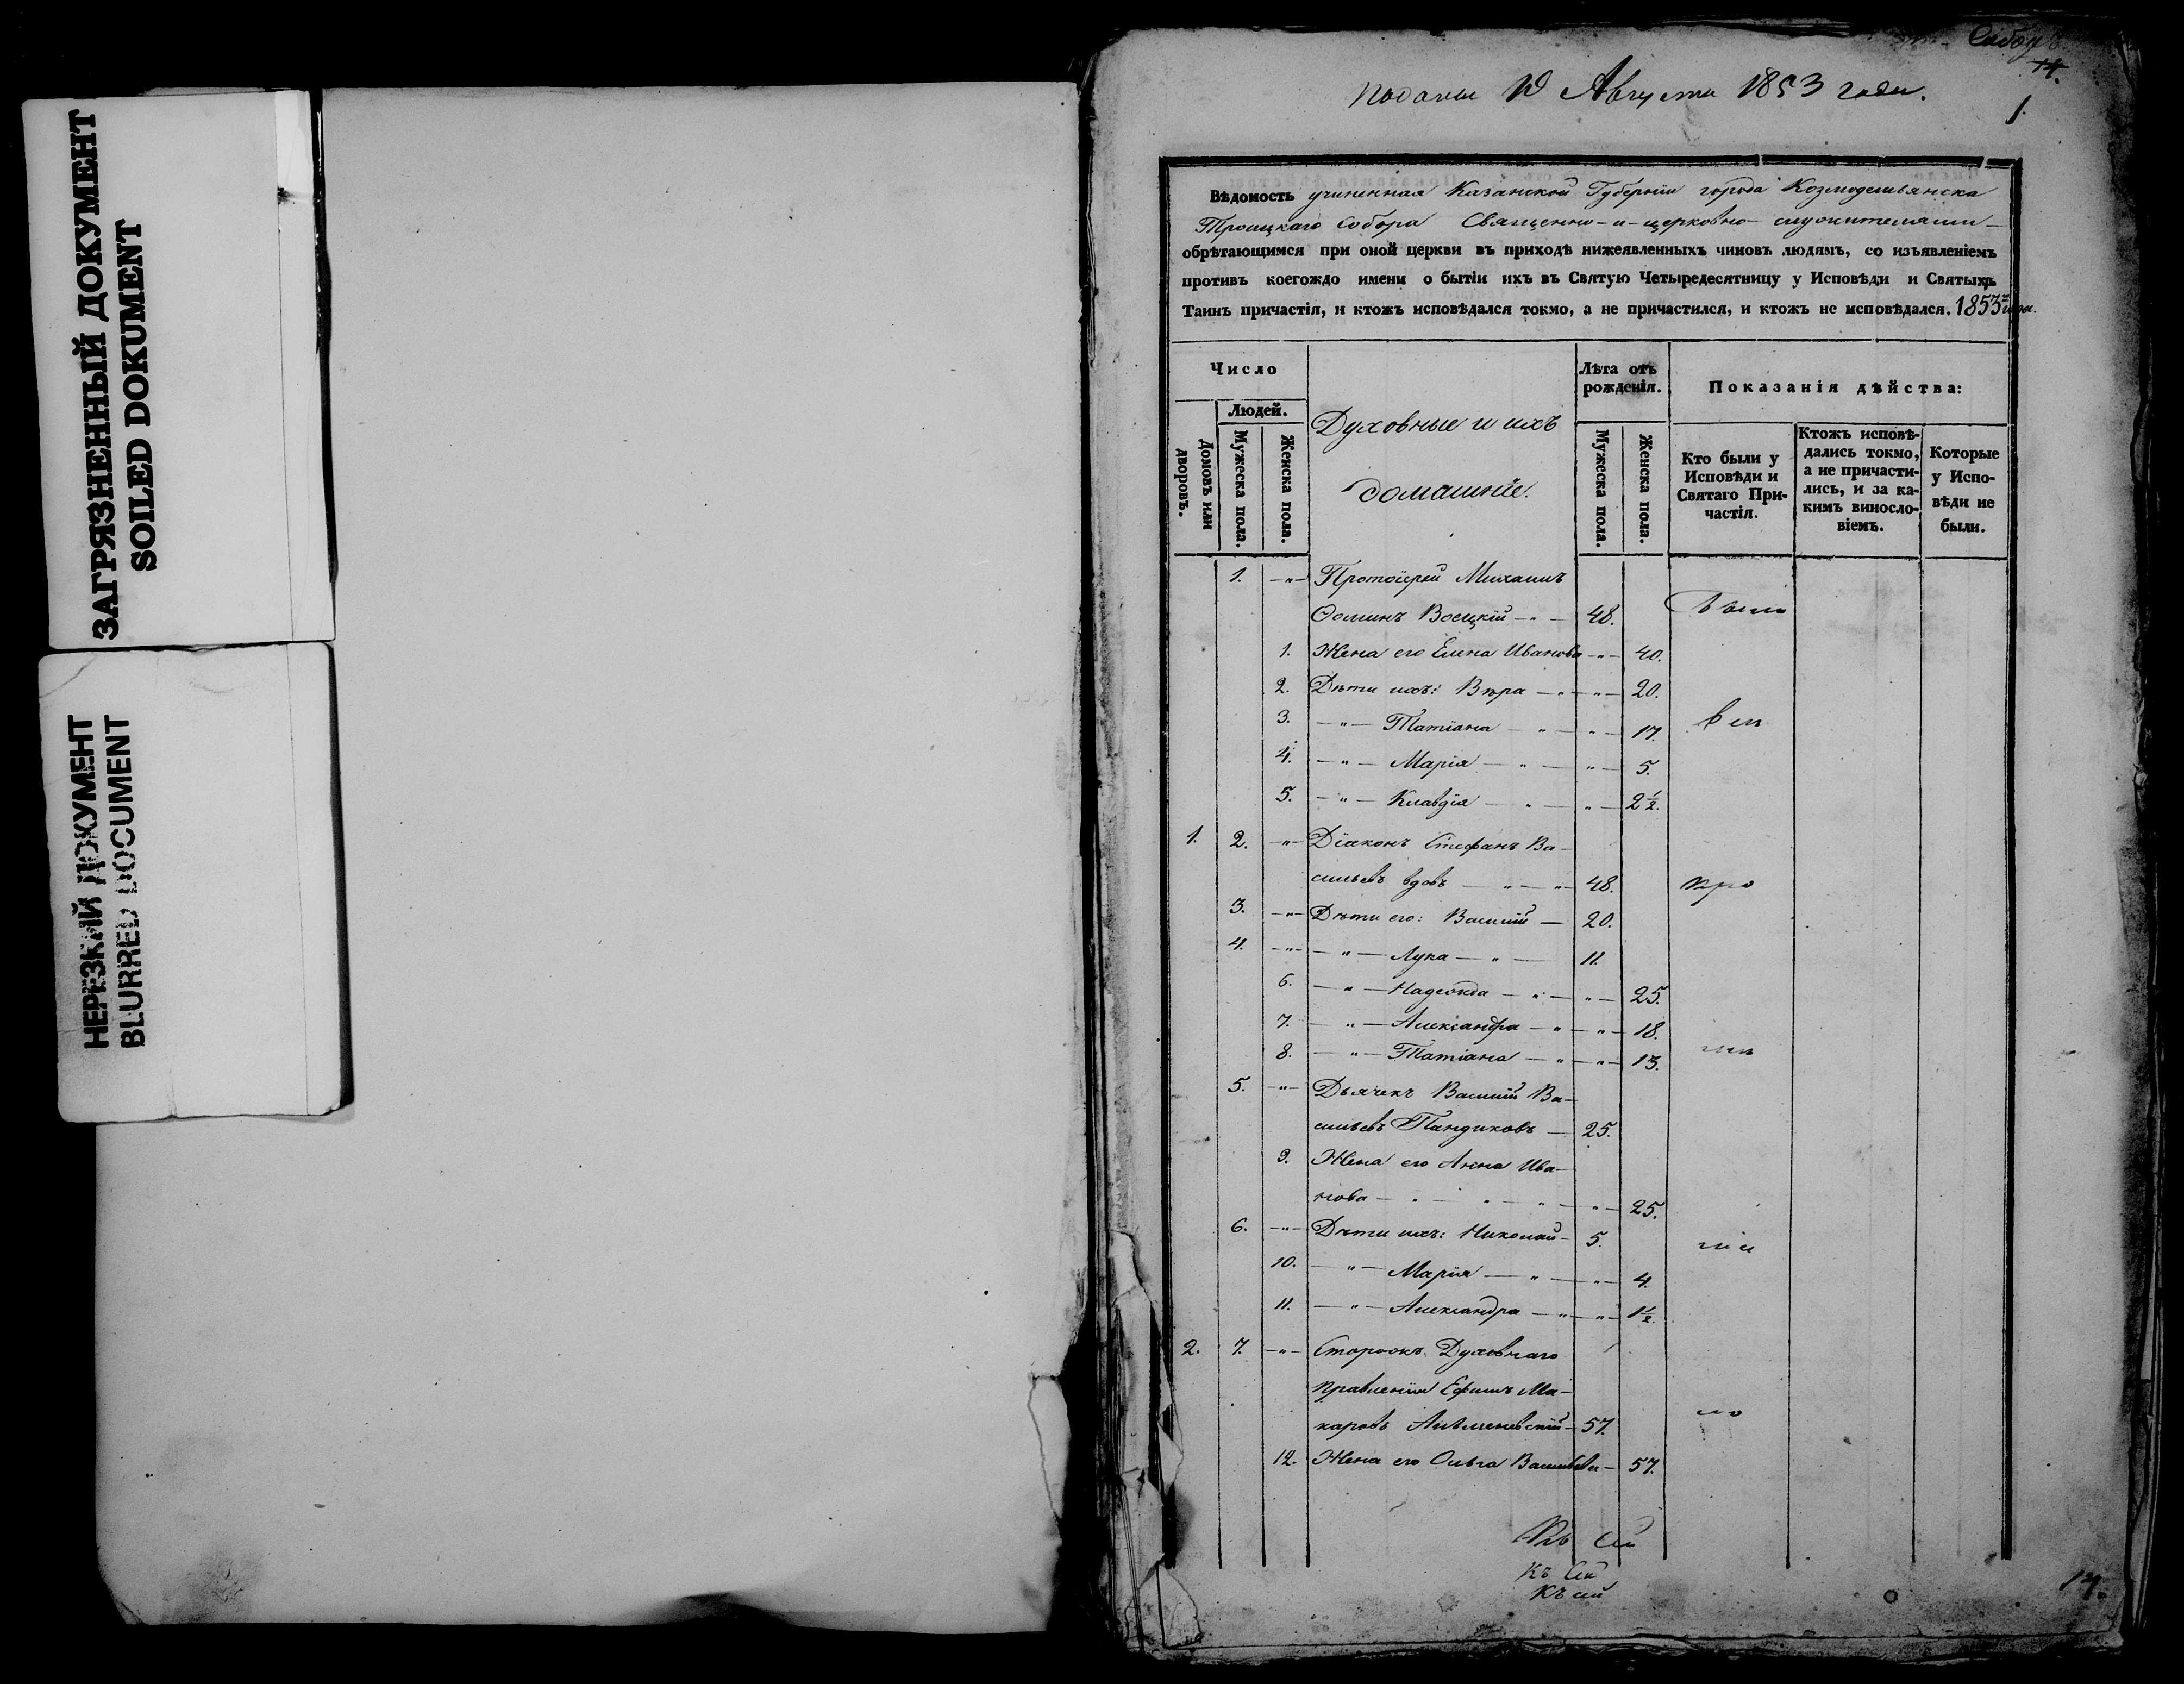 ЗАГРЯЗНЕННЫЙ ДОКУМЕНТ
SOILED DOKUMENT
НЕРЕЗКИЙ ДОКУМЕНТ
BLURRED DOCUMENT
14.
1.
Поданы 10 Августа 1853 года.
Вѣдомость учиненная Казанской Губерніи города Козмодемьянска
Троицкаго Собора Священно-и-церковно-служителями
обрѣтающимся при оной церкви въ приходѣ нижеявленныхъ чиновъ людямъ, со изъявленіемъ
противъ коегождо имени о бытіи ихъ въ Святую Четыредесятницу у Исповѣди и Святыхъ
Таинъ причастія, и ктожъ исповѣдался токмо, а не причастился, и ктожъ не исповѣдался. 1853 года.
Число
Людей.
Домовъ или дворовъ.
Мужеска пола.
Женска пола.
Духовные и ихъ
домашніе.
Лѣта отъ
рожденія.
Мужеска пола.
Женска пола.
Показанія дѣйства:
Кто были у
Исповѣди и
Святаго При-
частія.
Ктожъ исповѣ-
дались токмо,
а не причасти-
лись, и за ка-
кимъ винosло-
віемъ.
Которые
у Испо-
вѣди не
были.
1. -"- Протоіерей Михаилъ
Ѳоминъ Воецкій 48.
1. Жена его Елена Иванова -"- 40.
2. Дѣти ихъ: Вѣра -"- -"- 20.
3. -"- Татіана -"- -"- 17.
4. -"- Марія -"- -"- 5.
5. -"- Клавдія -"- -"- 2 1/2.
1. 2. -"- Діаконъ Стефанъ Ва-
сильевъ вдовъ -"- -"- 48.
3. -"- Дѣти его: Василій - 20.
4. -"- -"- Лука -"- 11.
6. -"- Надежда -"- -"- 25.
7. -"- Александра -"- -"- 18.
8. -"- Татіана -"- -"- 13.
5. -"- Дьячекъ Василій Ва-
сильевъ Пандиковъ - 25.
9. Жена его Анна Ива-
нова -"- -"- -"- -"- 25.
6. -"- Дѣти ихъ: Николай - 5.
10. -"- Марія -"- -"- 4.
11. -"- Александра -"- -"- 1 1/2.
2. 7. -"- Сторожъ Духовнаго
Правленія Ефимъ Ма-
каровъ 57.
12. Жена его Ольга Васильева - 57.
Къ сей
Къ Сей
Къ сей
14.